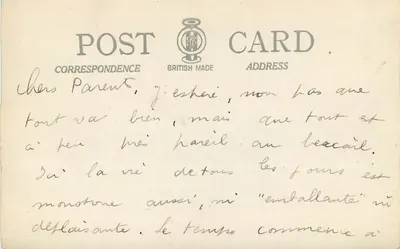 POST CARD
CORRESPONDENCE BRITISH MADE ADDRESS
Chers Parents, j'espère, non pas que
tout va bien, mais que tout est
à peu près pareil au bercail.
Ici la vie de tous les jours est
monotone aussi, ni "emballante" ni
déplaisante. Le temps commence à